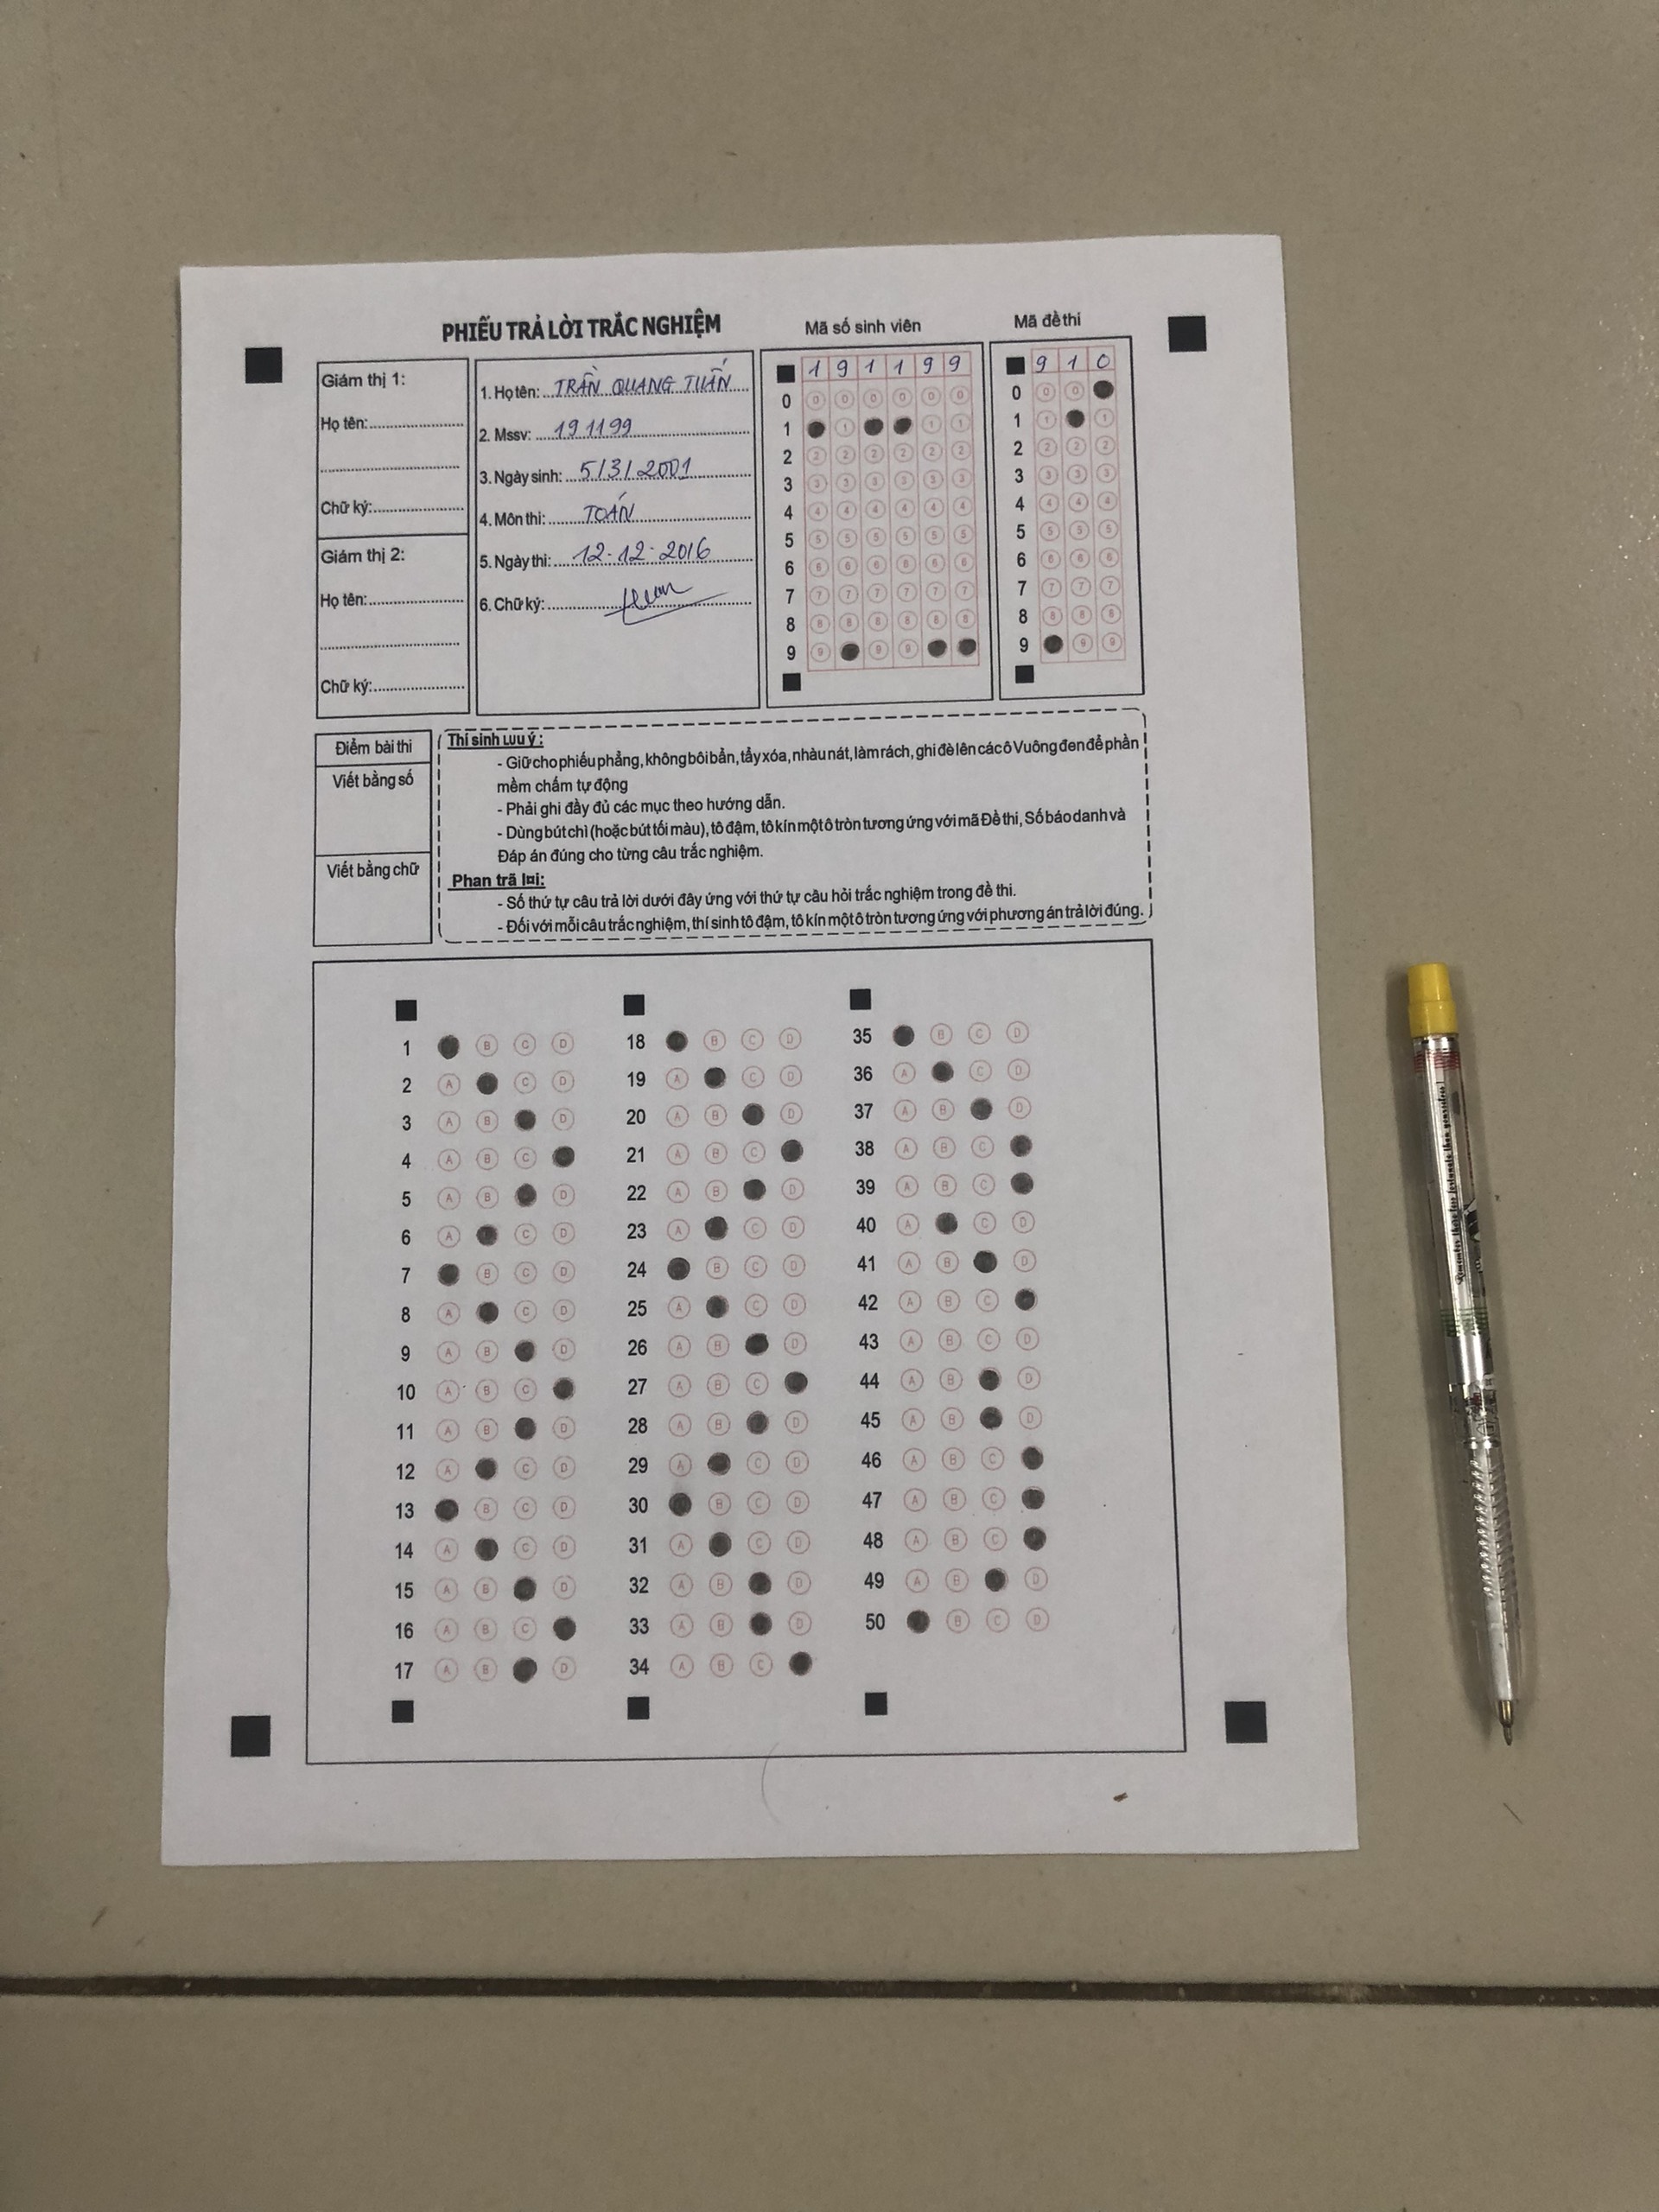 PHIẾU TRẢ LỜI TRẮC NGHIỆM
Mã số sinh viên
Mã đề thi
Giám thị 1:
Họ tên:
Chữ ký:
Giám thị 2:
Họ tên:
Chữ ký:
1. Họ tên: TRẦN QUANG TUẤN
2. Mssv: 191199
3. Ngày sinh: 5/3/2001
4. Môn thi: TOÁN
5. Ngày thi: 12.12.2016
6. Chữ ký:
1 9 1 1 9 9
0 0 0 0 0 0 0
1 1 1 1
2 2 2 2 2 2 2
3 3 3 3 3 3 3
4 4 4 4 4 4 4
5 5 5 5 5 5 5
6 6 6 6 6 6 6
7 7 7 7 7 7 7
8 8 8 8 8 8 8
9 9 9 9
9 1 0
0 0 0
1 1 1
2 2 2 2
3 3 3 3
4 4 4 4
5 5 5 5
6 6 6 6
7 7 7 7
8 8 8 8
9 9 9
Điểm bài thi
Viết bằng số
Viết bằng chữ
Thí sinh Lưu ý :
- Giữ cho phiếu phẳng, không bôi bẩn, tẩy xóa, nhàu nát, làm rách, ghi đè lên các ô Vuông đen để phần
mềm chấm tự động
- Phải ghi đầy đủ các mục theo hướng dẫn.
- Dùng bút chì (hoặc bút tối màu), tô đậm, tô kín một ô tròn tương ứng với mã Đề thi, Số báo danh và
Đáp án đúng cho từng câu trắc nghiệm.
Phan trã l¤i:
- Số thứ tự câu trả lời dưới đây ứng với thứ tự câu hỏi trắc nghiệm trong đề thi.
- Đối với mỗi câu trắc nghiệm, thí sinh tô đậm, tô kín một ô tròn tương ứng với phương án trả lời đúng.
1 B C D
2 A C D
3 A B D
4 A B C
5 A B D
6 A C D
7 B C D
8 A C D
9 A B D
10 A B C
11 A B D
12 A C D
13 B C D
14 A C D
15 A B D
16 A B C
17 A B D
18 B C D
19 A C D
20 A B D
21 A B C
22 A B D
23 A C D
24 B C D
25 A C D
26 A B D
27 A B C
28 A B D
29 A C D
30 B C D
31 A C D
32 A B D
33 A B D
34 A B C
35 B C D
36 A C D
37 A B D
38 A B C
39 A B C
40 A C D
41 A B D
42 A B C
43 A B C D
44 A B D
45 A B D
46 A B C
47 A B C
48 A B C
49 A B D
50 B C D